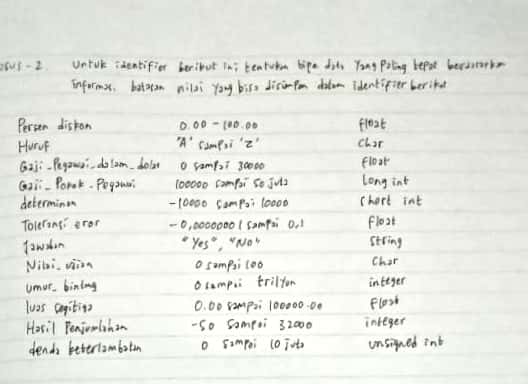 Kasus - 2. Untuk identifier berikut ini, tentukan tipe data yang paling tepat berdasarkan
informasi batasan nilai yang bisa disimpan dalam identifier berikut
Persen diskon 0.00 - 100.00 float
Huruf 'A' sampai 'Z' char
Gaji_Pegawai_dalam_dolar 0 sampai 30000 float
Gaji_Pokok_Pegawai 100000 sampai 50 juta Long int
determinan -10000 sampai 10000 short int
Toleransi eror -0,0000001 sampai 0,1 Float
Jawaban "Yes", "No" String
Nilai_ujian 0 sampai 100 Char
umur_bintang 0 sampai trilyun integer
luas segitiga 0.00 sampai 100000.00 Float
Hasil Penjumlahan -50 sampai 32000 integer
denda keterlambatan 0 sampai 10 juta unsigned int